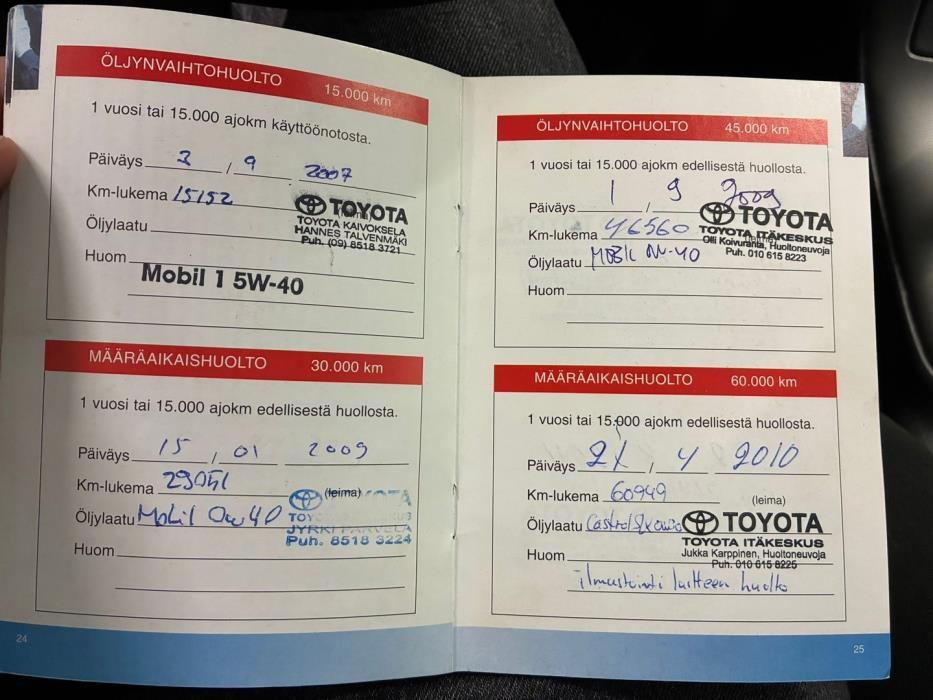 ÖLJYNVAIHTOHUOLTO 15.000 km
1 vuosi tai 15.000 ajokm käyttöönotosta.
Päiväys 3 / 9 2007
Km-lukema 15152
(leima)
TOYOTA
TOYOTA KAIVOKSELA
HANNES TALVENMÄKI
Puh. (09) 8518 3721
Öljylaatu
Huom
Mobil 1 5W-40
MÄÄRÄAIKAISHUOLTO 30.000 km
1 vuosi tai 15.000 ajokm edellisestä huollosta.
Päiväys 15 / 01 2009
Km-lukema 29051
(leima)
Öljylaatu Mobil 0w40
JYRKI
Puh. 8518 3224
Huom
24
ÖLJYNVAIHTOHUOLTO 45.000 km
1 vuosi tai 15.000 ajokm edellisestä huollosta.
Päiväys 1 / 9 2009
Km-lukema 46560
TOYOTA
TOYOTA ITÄKESKUS
Olli Koivuranta, Huoltoneuvoja
Puh. 010 615 8223
Öljylaatu MOBIL 0W-40
Huom
MÄÄRÄAIKAISHUOLTO 60.000 km
1 vuosi tai 15.000 ajokm edellisestä huollosta.
Päiväys 21 / 4 2010
Km-lukema 60949
(leima)
Öljylaatu Castrol
TOYOTA
TOYOTA ITÄKESKUS
Jukka Karppinen, Huoltoneuvoja
Puh. 010 615 8225
Huom
ilmastointi laitteen huolto
25